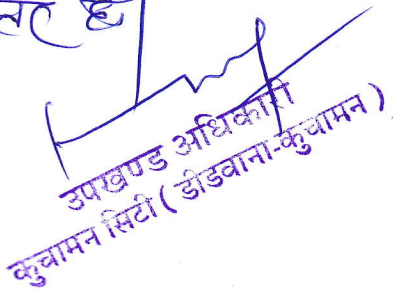 उपखण्ड अधिकारी
कुचामन सिटी ( डीडवाना-कुचामन )